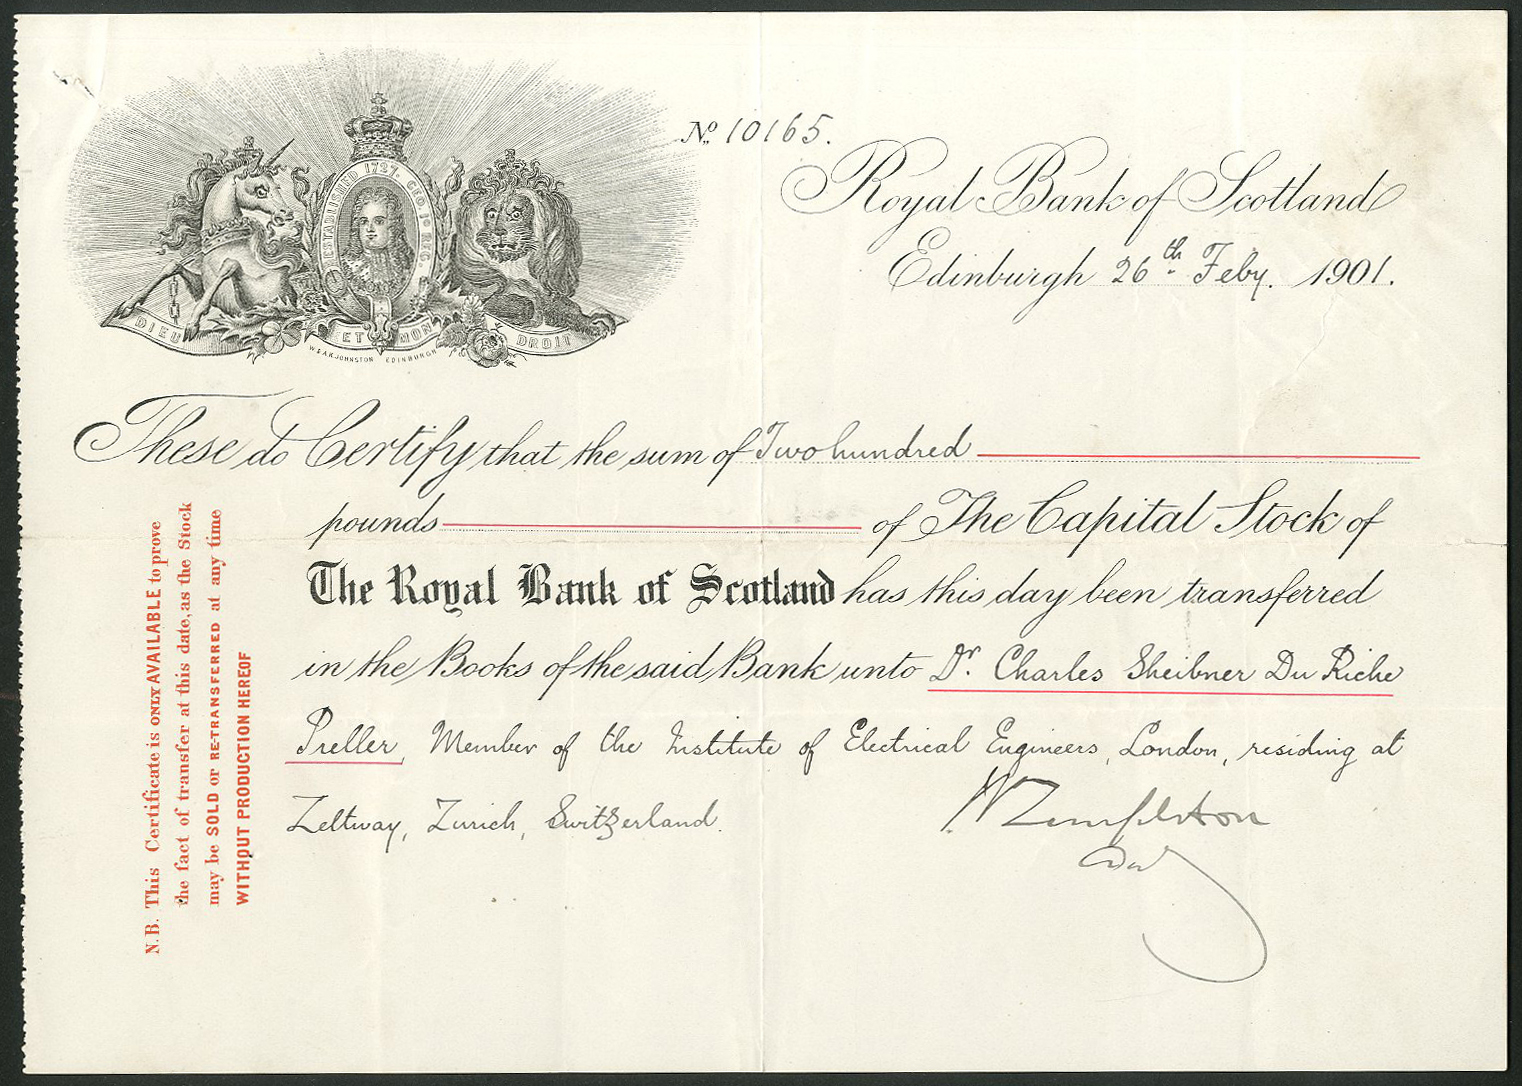 No 10165.
Royal Bank of Scotland
Edinburgh 26th Feby. 1901.
ESTABLISHED 1727. GEO. I° REG.
DIEU ET MON DROIT
W & A.K. JOHNSTON EDINBURGH
These do Certify that the sum of Two hundred
pounds of The Capital Stock of
The Royal Bank of Scotland has this day been transferred
in the Books of the said Bank unto Dr. Charles Sheibner Du Riche
Preller, Member of the Institute of Electrical Engineers, London, residing at
Zeltway, Zurich, Switzerland.
W Templeton
N.B. This Certificate is ONLY AVAILABLE to prove
the fact of transfer at this date, as the Stock
may be SOLD or RE-TRANSFERRED at any time
WITHOUT PRODUCTION HEREOF